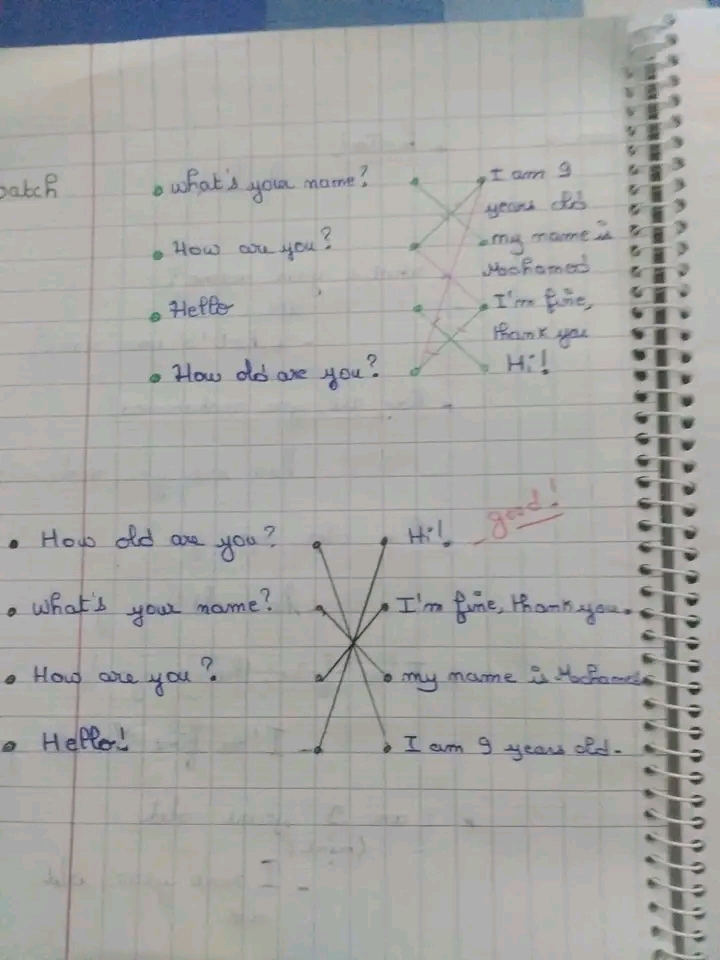 what's your name? I am 9
years old
How are you? my name is
Mochamed
Hello I'm fine,
thank you
How old are you? Hi!
How old are you? Hi! good!
what's your name? I'm fine, thank you.
How are you? my name is Mochamed
Hello! I am 9 years old.